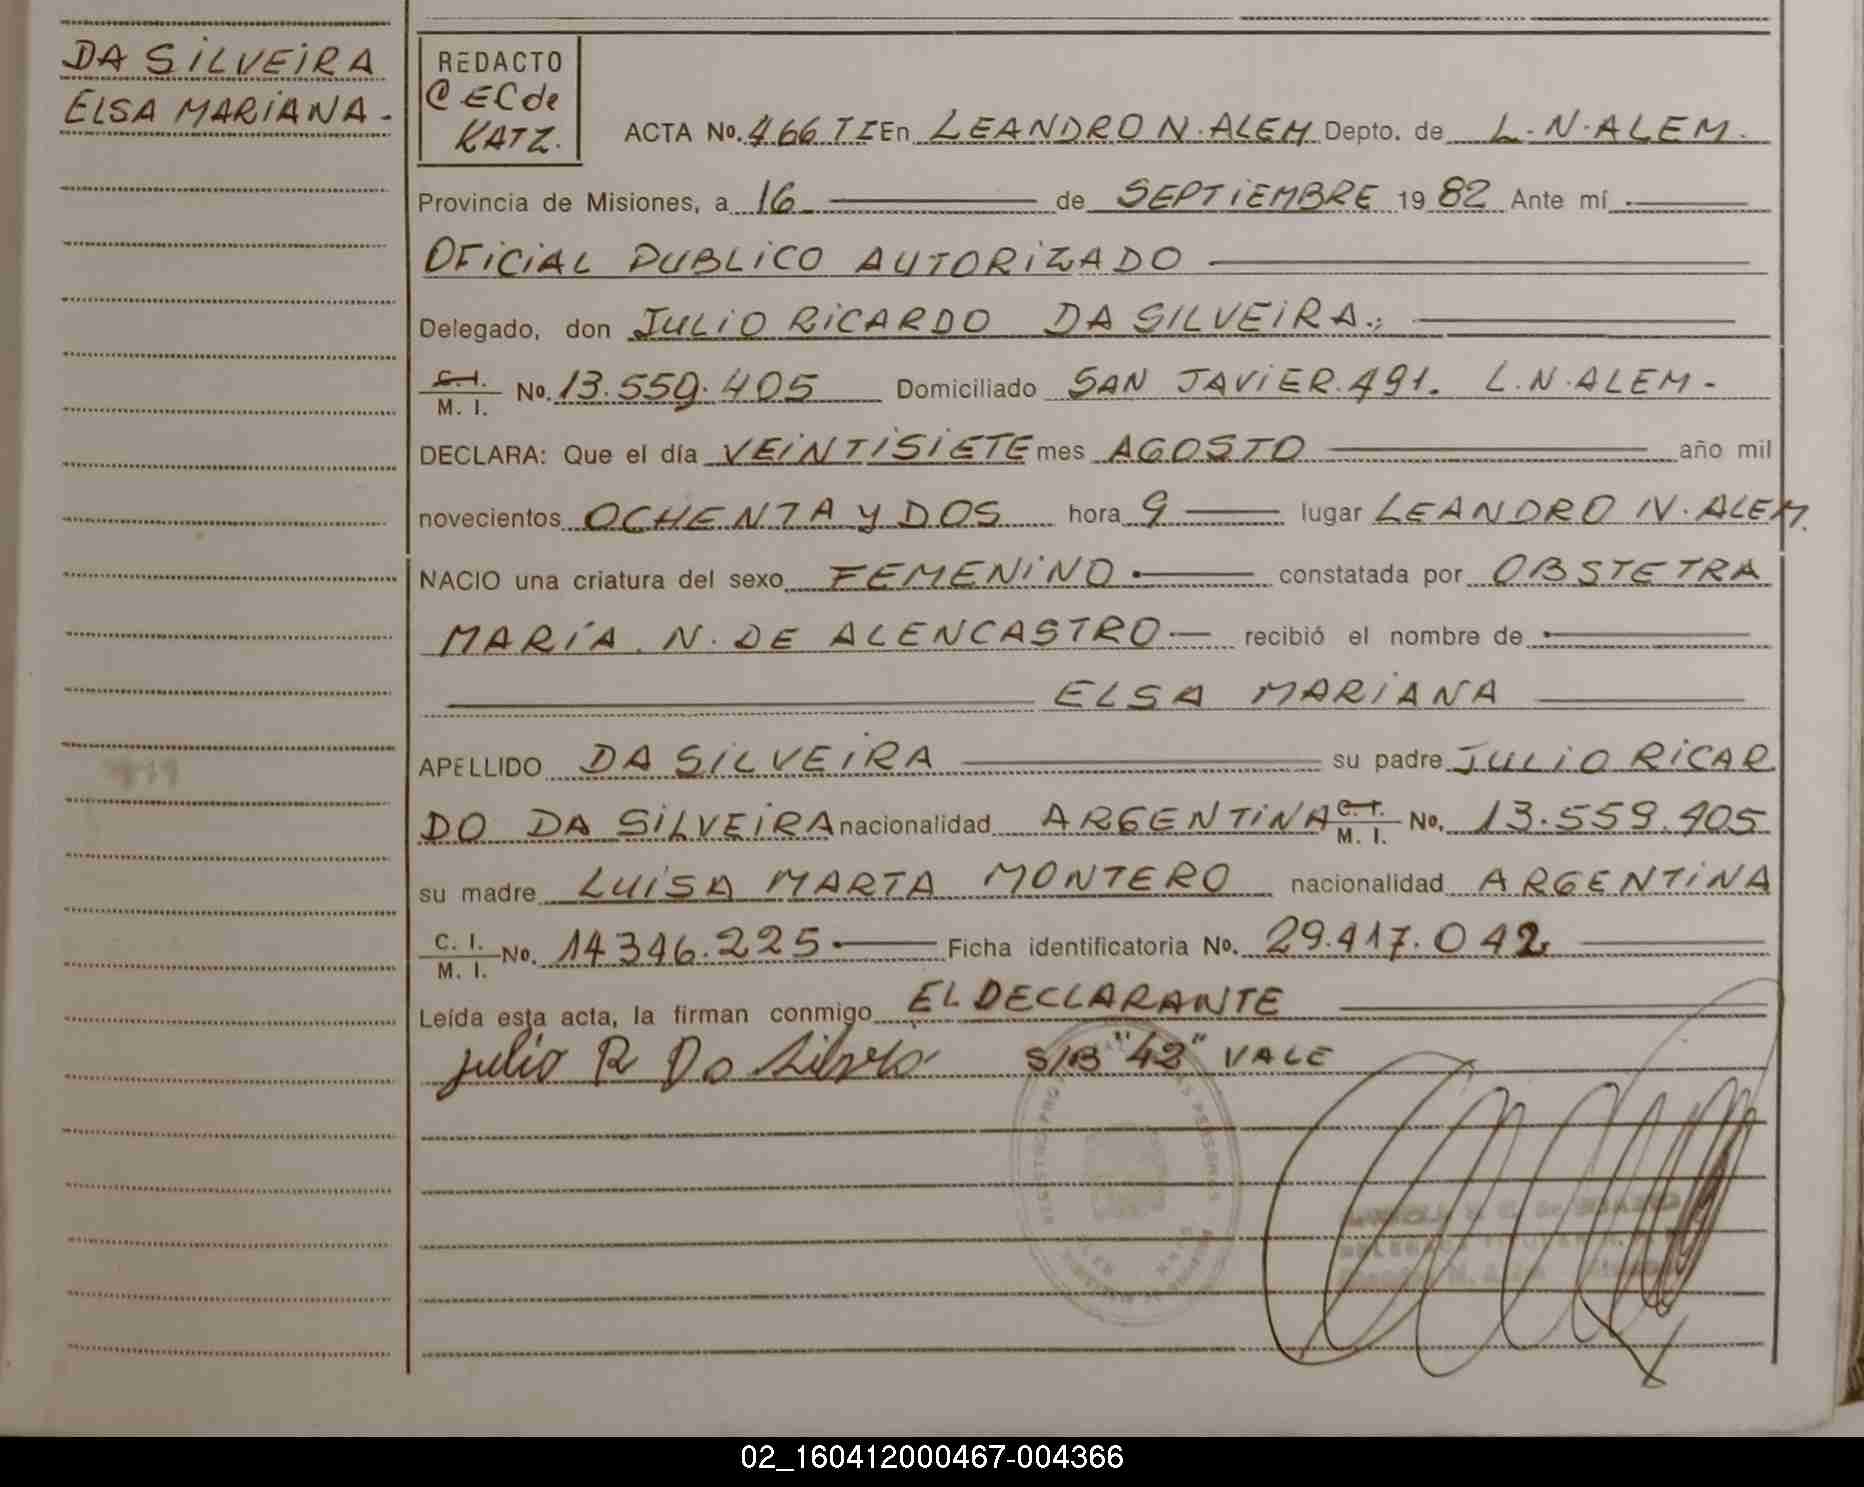 DA SILVEIRA
ELSA MARIANA.-
REDACTO
@ EC de
KATZ.
ACTA No. 466 TI En LEANDRO N. ALEM Depto. de L. N. ALEM.
Provincia de Misiones, a 16 de SEPTIEMBRE 1982 Ante mí
OFICIAL PUBLICO AUTORIZADO
Delegado, don JULIO RICARDO DA SILVEIRA.;
C. I. / M. I. No. 13.559.405 Domiciliado SAN JAVIER. 491. L.N. ALEM-
DECLARA: Que el día VEINTISIETE mes AGOSTO año mil
novecientos OCHENTA y DOS hora 9 lugar LEANDRO N. ALEM.
NACIO una criatura del sexo FEMENINO constatada por OBSTETRA
MARÍA. N. DE ALENCASTRO recibió el nombre de
ELSA MARIANA
APELLIDO DA SILVEIRA su padre JULIO RICAR
DO DA SILVEIRA nacionalidad ARGENTINA C. I. / M. I. No. 13.559.405
su madre LUISA MARTA MONTERO nacionalidad ARGENTINA
C. I. / M. I. No. 14346.225 Ficha identificatoria No. 29.417.042
Leída esta acta, la firman conmigo EL DECLARANTE
Julio R Da Silveira S/B "42" VALE
02_160412000467-004366